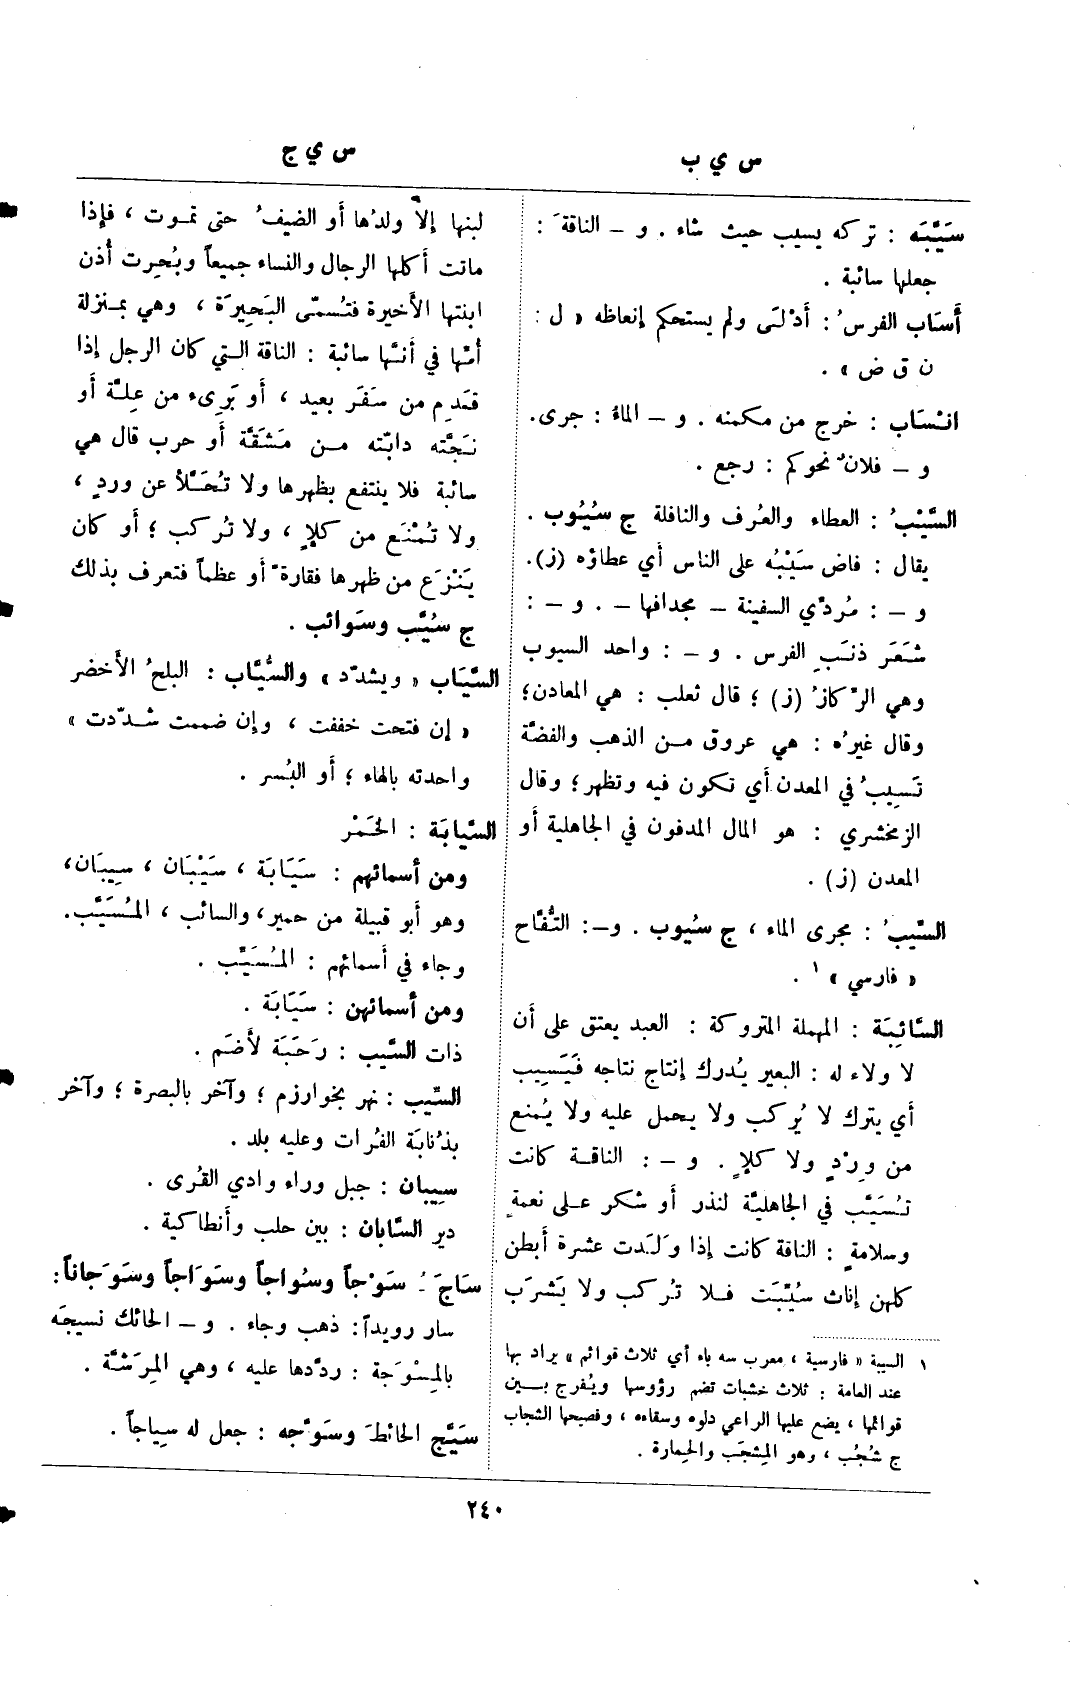 س ي ب
س ي ج
سَيَّبَه : تركه يسيب حيث شاء . و – الناقةَ :
جعلها سائبة .
أَسَاب الفرسُ : أَدْلَى ولم يستحكم إنعاظه « ل :
ن ق ض » .
انْسَاب : خرج من مكمنه . و – الماءُ : جرى.
و – فلانٌ نحوكم : رجع .
السَّيْبُ : العطاء والعُرف والنافلة ج سُيُوب .
يقال : فاض سَيْبُه على الناس أي عطاؤه (ز).
و – : مُرديّ السفينة – مجدافها – . و – :
شَعَر ذنَبِ الفرس . و – : واحد السيوب
وهي الرِّكازُ (ز) ؛ قال ثعلب : هي المعادن؛
وقال غيرُه : هي عروق من الذهب والفضَّة
تَسِيبُ في المعدن أي تكون فيه وتظهر ؛ وقال
الزمخشري : هو المال المدفون في الجاهلية أو
المعدن (ز) .
السِّيبُ : مجرى الماء ، ج سُيوب . و–: التُّفَّاح
« فارسي » ١ .
السَّائِبَة : المهملة المتروكة : العبد يعتق على أن
لا ولاء له : البعير يُدرك إنتاج نتاجه فَيَسِيب
أي يترك لا يُركب ولا يحمل عليه ولا يُمنع
من وِرْدٍ ولا كلإٍ . و – : الناقة كانت
تُسَيَّب في الجاهليَّة لنذر أو شكر على نعمةٍ
وسلامةٍ : الناقة كانت إذا وَلَدت عشرة أبطن
كلهن إناث سُيِّبَت فلا تُركب ولا يَشرَب
١ السيبة « فارسية ، معرب سه باء أي ثلاث قوائم » يراد بها
عند العامة : ثلاث خشبات تضم رؤوسها ويُفرج بين
قوائمها ، يضع عليها الراعي دلوه وسقاءه ، وفصيحها الشجاب
ج شُجُب ، وهو المِشجَب والحِمارة .
لبنها إلاَّ ولدُها أو الضيفُ حتى تموت ، فإذا
ماتت أكلها الرجال والنساء جميعاً وبُحِرت أُذن
ابنتها الأخيرة فتُسمّى البَحِيرَة ، وهي بمنزلة
أُمّها في أنَّها سائبة : الناقة التي كان الرجل إذا
قَدِم من سَفَر بعيد ، أو بَرِىء من عِلَّة أو
نَجَّته دابّته من مَشَقَّة أو حرب قال هي
سائبة فلا ينتفع بظهرها ولا تُحَلَّأ عن وردٍ ،
ولا تُمْنَع من كلإٍ ، ولا تُركب ؛ أو كان
يَنْزِع من ظهرها فقارةً أو عظماً فتعرف بذلك
ج سُيَّب وسَوائب .
السَّيَاب « ويشدّد » والسُّيَّاب : البلحُ الأخضر
« إن فتحت خففت ، وإن ضممت شدّدت »
واحدته بالهاء ؛ أو البُسر .
السَّيابَة : الخَمْر
ومن أسمائهم : سَيَابَة ، سَيْبَان ، سِيبَان،
وهو أبو قبيلة من حمير، والسائب ، المُسَيَّب.
وجاء في أسمائهم : المُسَيِّب .
ومن أسمائهن : سَيَابَة .
ذات السَّيب : رَحَبَة لأضَم .
السِّيب : نهر بخوارزم ؛ وآخر بالبصرة ؛ وآخر
بذُنابَة الفُرات وعليه بلد .
سِيبان : جبل وراء وادي القُرى .
دير السَّابان : بين حلب وأنطاكية .
سَاجَ ـُ سَوْجاً وسُواجاً وسَوَاجاً وسَوَجاناً:
سار رويداً: ذهب وجاء . و – الحائك نسيجَه
بالمِسْوَجة : ردَّدها عليه ، وهي المِرَشَّة .
سَيَّج الحائطَ وسَوَّجه : جعل له سِياجاً .
٢٤٠